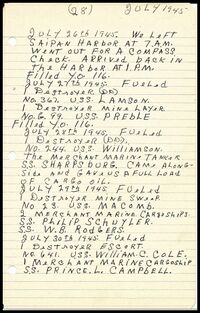 (28) JULY 1945
JULY 26TH 1945. WE LEFT
SAIPAN HARBOR AT 7.A.M.
WENT OUT FOR A COMPASS
CHECK. ARRIVED BACK IN
THE HARBOR AT 1.P.M.
FILLED YO. 116.
JULY 27TH 1945. FUELED
1 DESTROYER (DD).
NO. 367. U.S.S. LAMSON.
1 DESTROYER MINE LAYER
NO. 99. U.S.S. PREBLE
FILLED YO. 116.
JULY 28TH 1945. FUELED
1 DESTROYER (DD).
NO. 244. U.S.S. WILLIAMSON.
THE MERCHANT MARINE TANKER
SS. SHARPSBURG. CAME ALONG-
SIDE AND GAVE US A FULL LOAD
OF CARGO OIL.
JULY 29TH 1945. FUELED
1 DESTROYER MINE SWEEP.
NO 23. U.S.S. MACOMB.
2 MERCHANT MARINE CARGOSHIPS.
SS. PHILIP SCHUYLER.
SS. W.B. RODGERS.
JULY 30TH 1945. FUELED
1 DESTROYER ESCORT.
NO. 641. U.S.S. WILLIAM.C. COLE.
1 MERCHANT MARINE CARGOSHIP
SS. PRINCE.L. CAMPBELL.